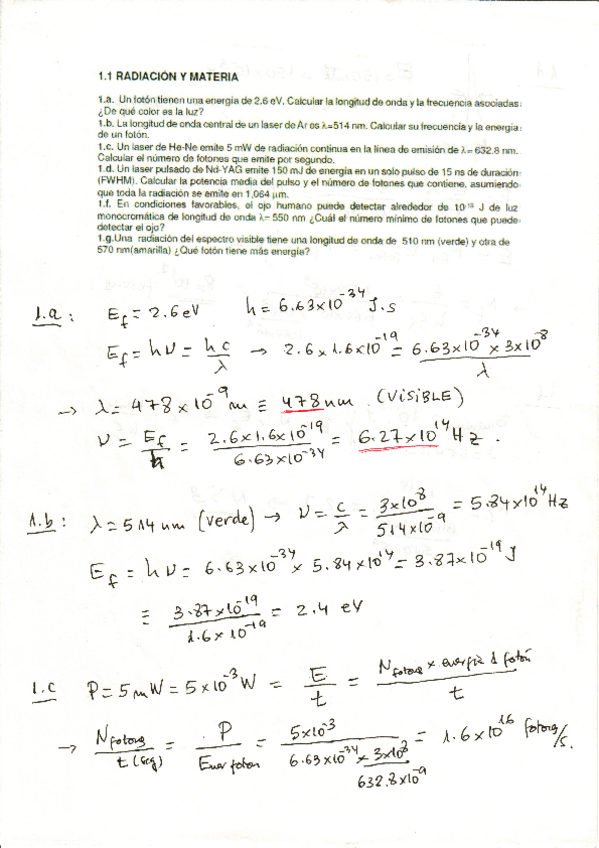 1.1 RADIACIÓN Y MATERIA
1.a. Un fotón tienen una energía de 2.6 eV. Calcular la longitud de onda y la frecuencia asociadas.
¿De qué color es la luz?
1.b. La longitud de onda central de un laser de Ar es λ=514 nm. Calcular su frecuencia y la energía
de un fotón.
1.c. Un laser de He-Ne emite 5 mW de radiación continua en la línea de emisión de λ= 632.8 nm.
Calcular el número de fotones que emite por segundo.
1.d. Un laser pulsado de Nd-YAG emite 150 mJ de energía en un solo pulso de 15 ns de duración
(FWHM). Calcular la potencia media del pulso y el número de fotones que contiene, asumiendo
que toda la radiación se emite en 1,064 μm.
1.f. En condiciones favorables, el ojo humano puede detectar alrededor de J de luz
monocromática de longitud de onda λ= 550 nm ¿Cuál el número mínimo de fotones que puede
detectar el ojo?
1.g.Una radiación del espectro visible tiene una longitud de onda de 510 nm (verde) y otra de
570 nm(amarilla) ¿Qué fotón tiene más energía?
1.a : E_f = 2.6 eV h = 6.63×10^-34 J.s
E_f = hν = hc/λ → 2.6 × 1.6×10^-19 = 6.63×10^-34 × 3×10^-8 / λ
→ λ = 478 × 10^-9 m ≡ 478 nm (VISIBLE)
ν = E_f/h = 2.6×1.6×10^-19 / 6.63×10^-34 = 6.27×10^14 Hz.
1.b : λ = 514 nm (verde) → ν = c/λ = 3×10^8 / 514×10^-9 = 5.84×10^14 Hz
E_f = hν = 6.63×10^-34 × 5.84×10^14 = 3.87×10^-19 J
≡ 3.87×10^-19 / 1.6×10^-19 = 2.4 eV
1.c P = 5 mW = 5×10^-3 W = E/t = N fotones × energía d fotón / t
→ N fotones / t (seg) = P / Ener foton = 5×10^-3 / 6.63×10^-34 × 3×10^8 / 632.8×10^-9 = 1.6×10^16 fotones/s.